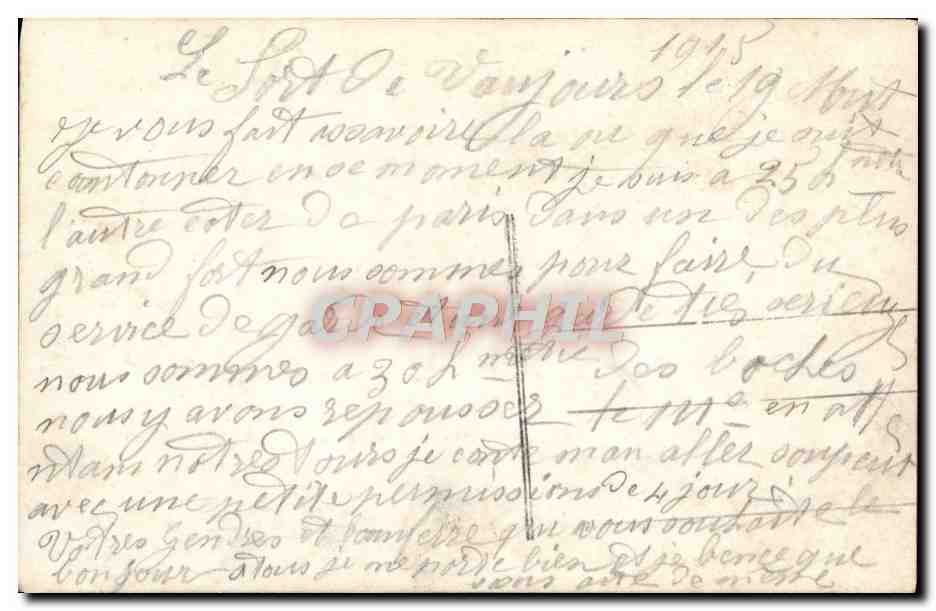 1915
Le Fort de Vaujours le 19 Aout
je vous fait assavoire la ou que je suit
cantonner en ce moment je suis a 25 h
l'autre coter de paris dans un des plus
grand fort nous sommes pour faire du
service de garde qui de tres serieu
nous sommes a 30 h metre des boches
nous y avons repousser en att
ntant notres tours je conte man aller
avec une petite permissions de 4 jour
Votres Gendres et qui vous souhaite le
bonjour a tous je me porte bien et je pence que
vous aure de meme
CPAPHIL